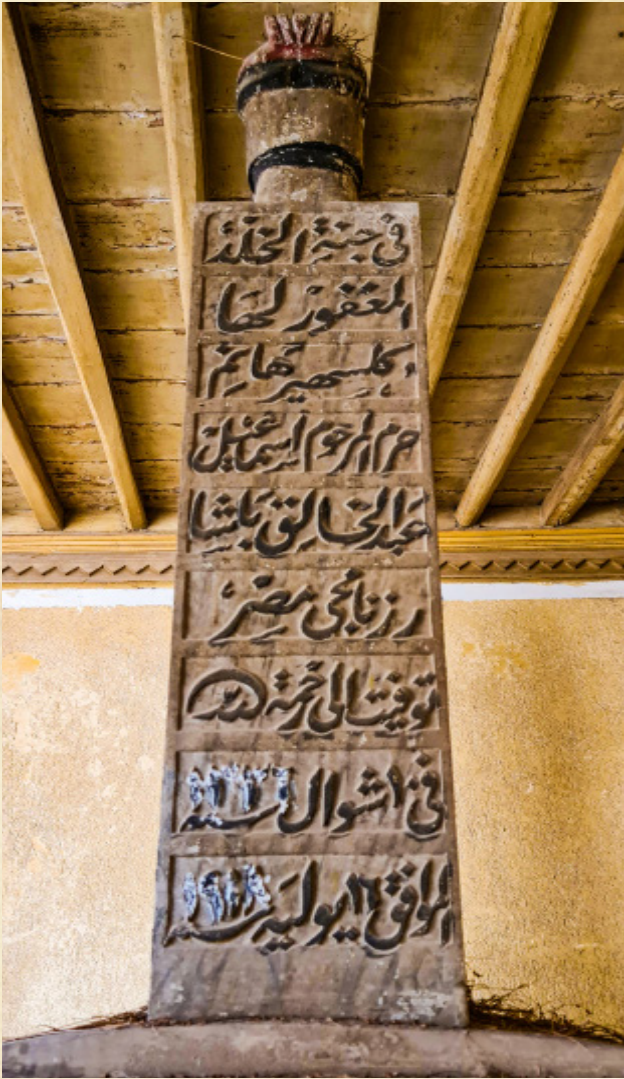 في جنة الخلد
المغفور لها
كلسهير هانم
حرم المرحوم اسماعيل
عبد الخالق باشا
رزنامجي مصر
توفيت الى رحمة الله
في ١٠ شوال سنة ١٣٣٦
الموافق ١٦ يوليه سنة ١٩١٨